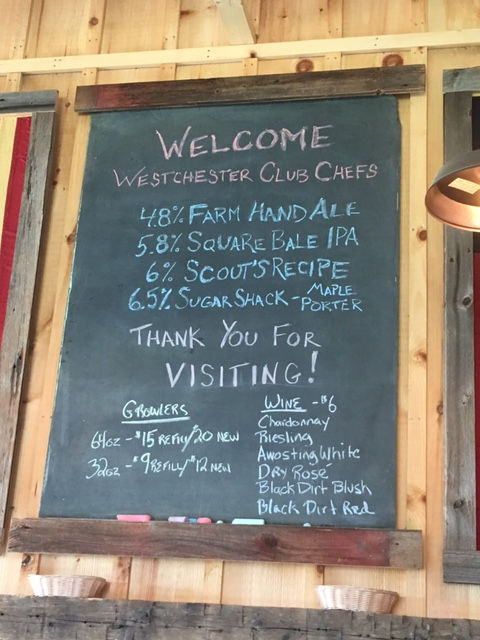 WELCOME
WESTCHESTER CLUB CHEFS
4.8% FARM HAND ALE
5.8% SQUARE BALE IPA
6% SCOUT'S RECIPE
6.5% SUGAR SHACK - MAPLE PORTER
THANK YOU FOR
VISITING!
GROWLERS
64oz - $15 REFILL/20 NEW
32oz - $9 REFILL/$12 NEW
WINE - $6
Chardonnay
Riesling
Awosting White
DRY Rosé
Black Dirt Blush
Black Dirt Red